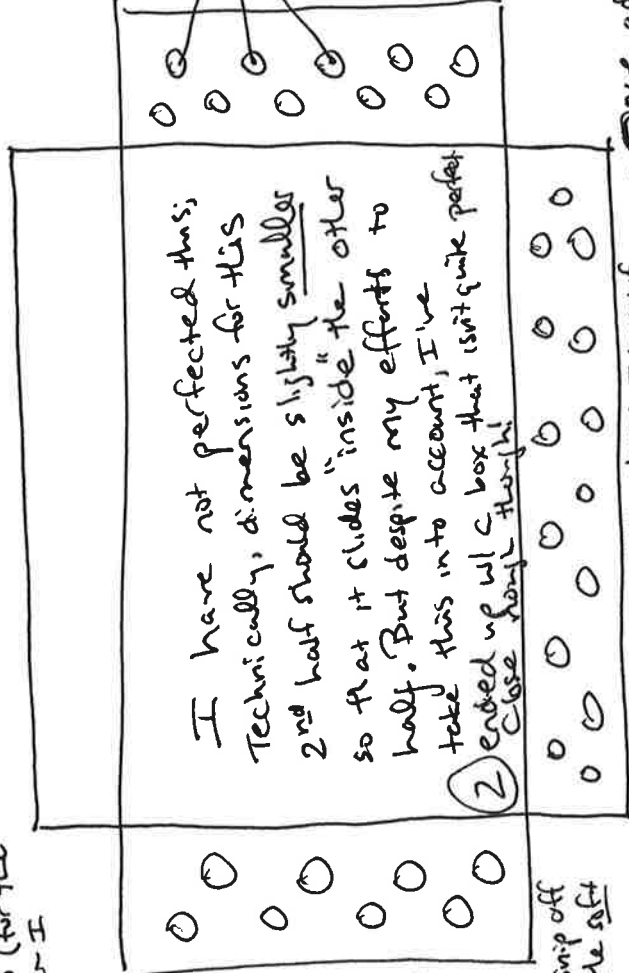 I have not perfected this;
Technically, dimensions for this
2nd half should be slightly smaller
so that it slides "inside" the other
half. But despite my efforts to
take this into account, I've
ended up w/ a box that isn't quite perfect
Close enough though!
2
(for the
I
snip off
soft